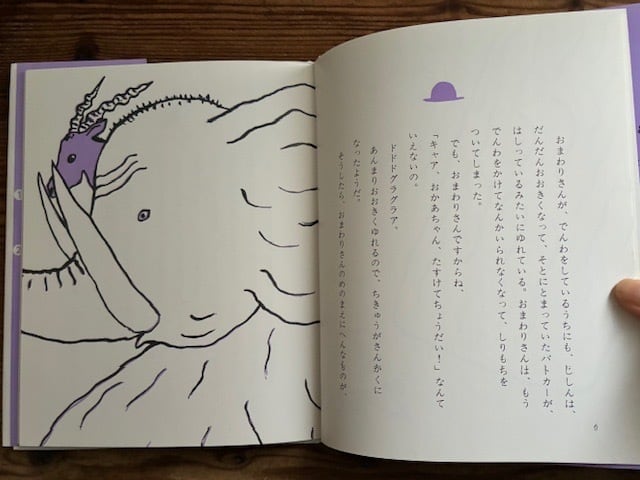 おまわりさんが、でんわをしているうちにも、じしんは、
だんだんおおきくなって、そとにとまっていたパトカーが、
はしっているみたいにゆれている。おまわりさんは、もう
でんわをかけてなんかいられなくなって、しりもちを
ついてしまった。
でも、おまわりさんですからね、
「キャア、おかあちゃん、たすけてちょうだい！」なんて
いえないの。
ドドドグラグラア、
あんまりおおきくゆれるので、ちきゅうがさんかくに
なったようだ。
そうしたら、おまわりさんのめのまえにへんなものが、
6